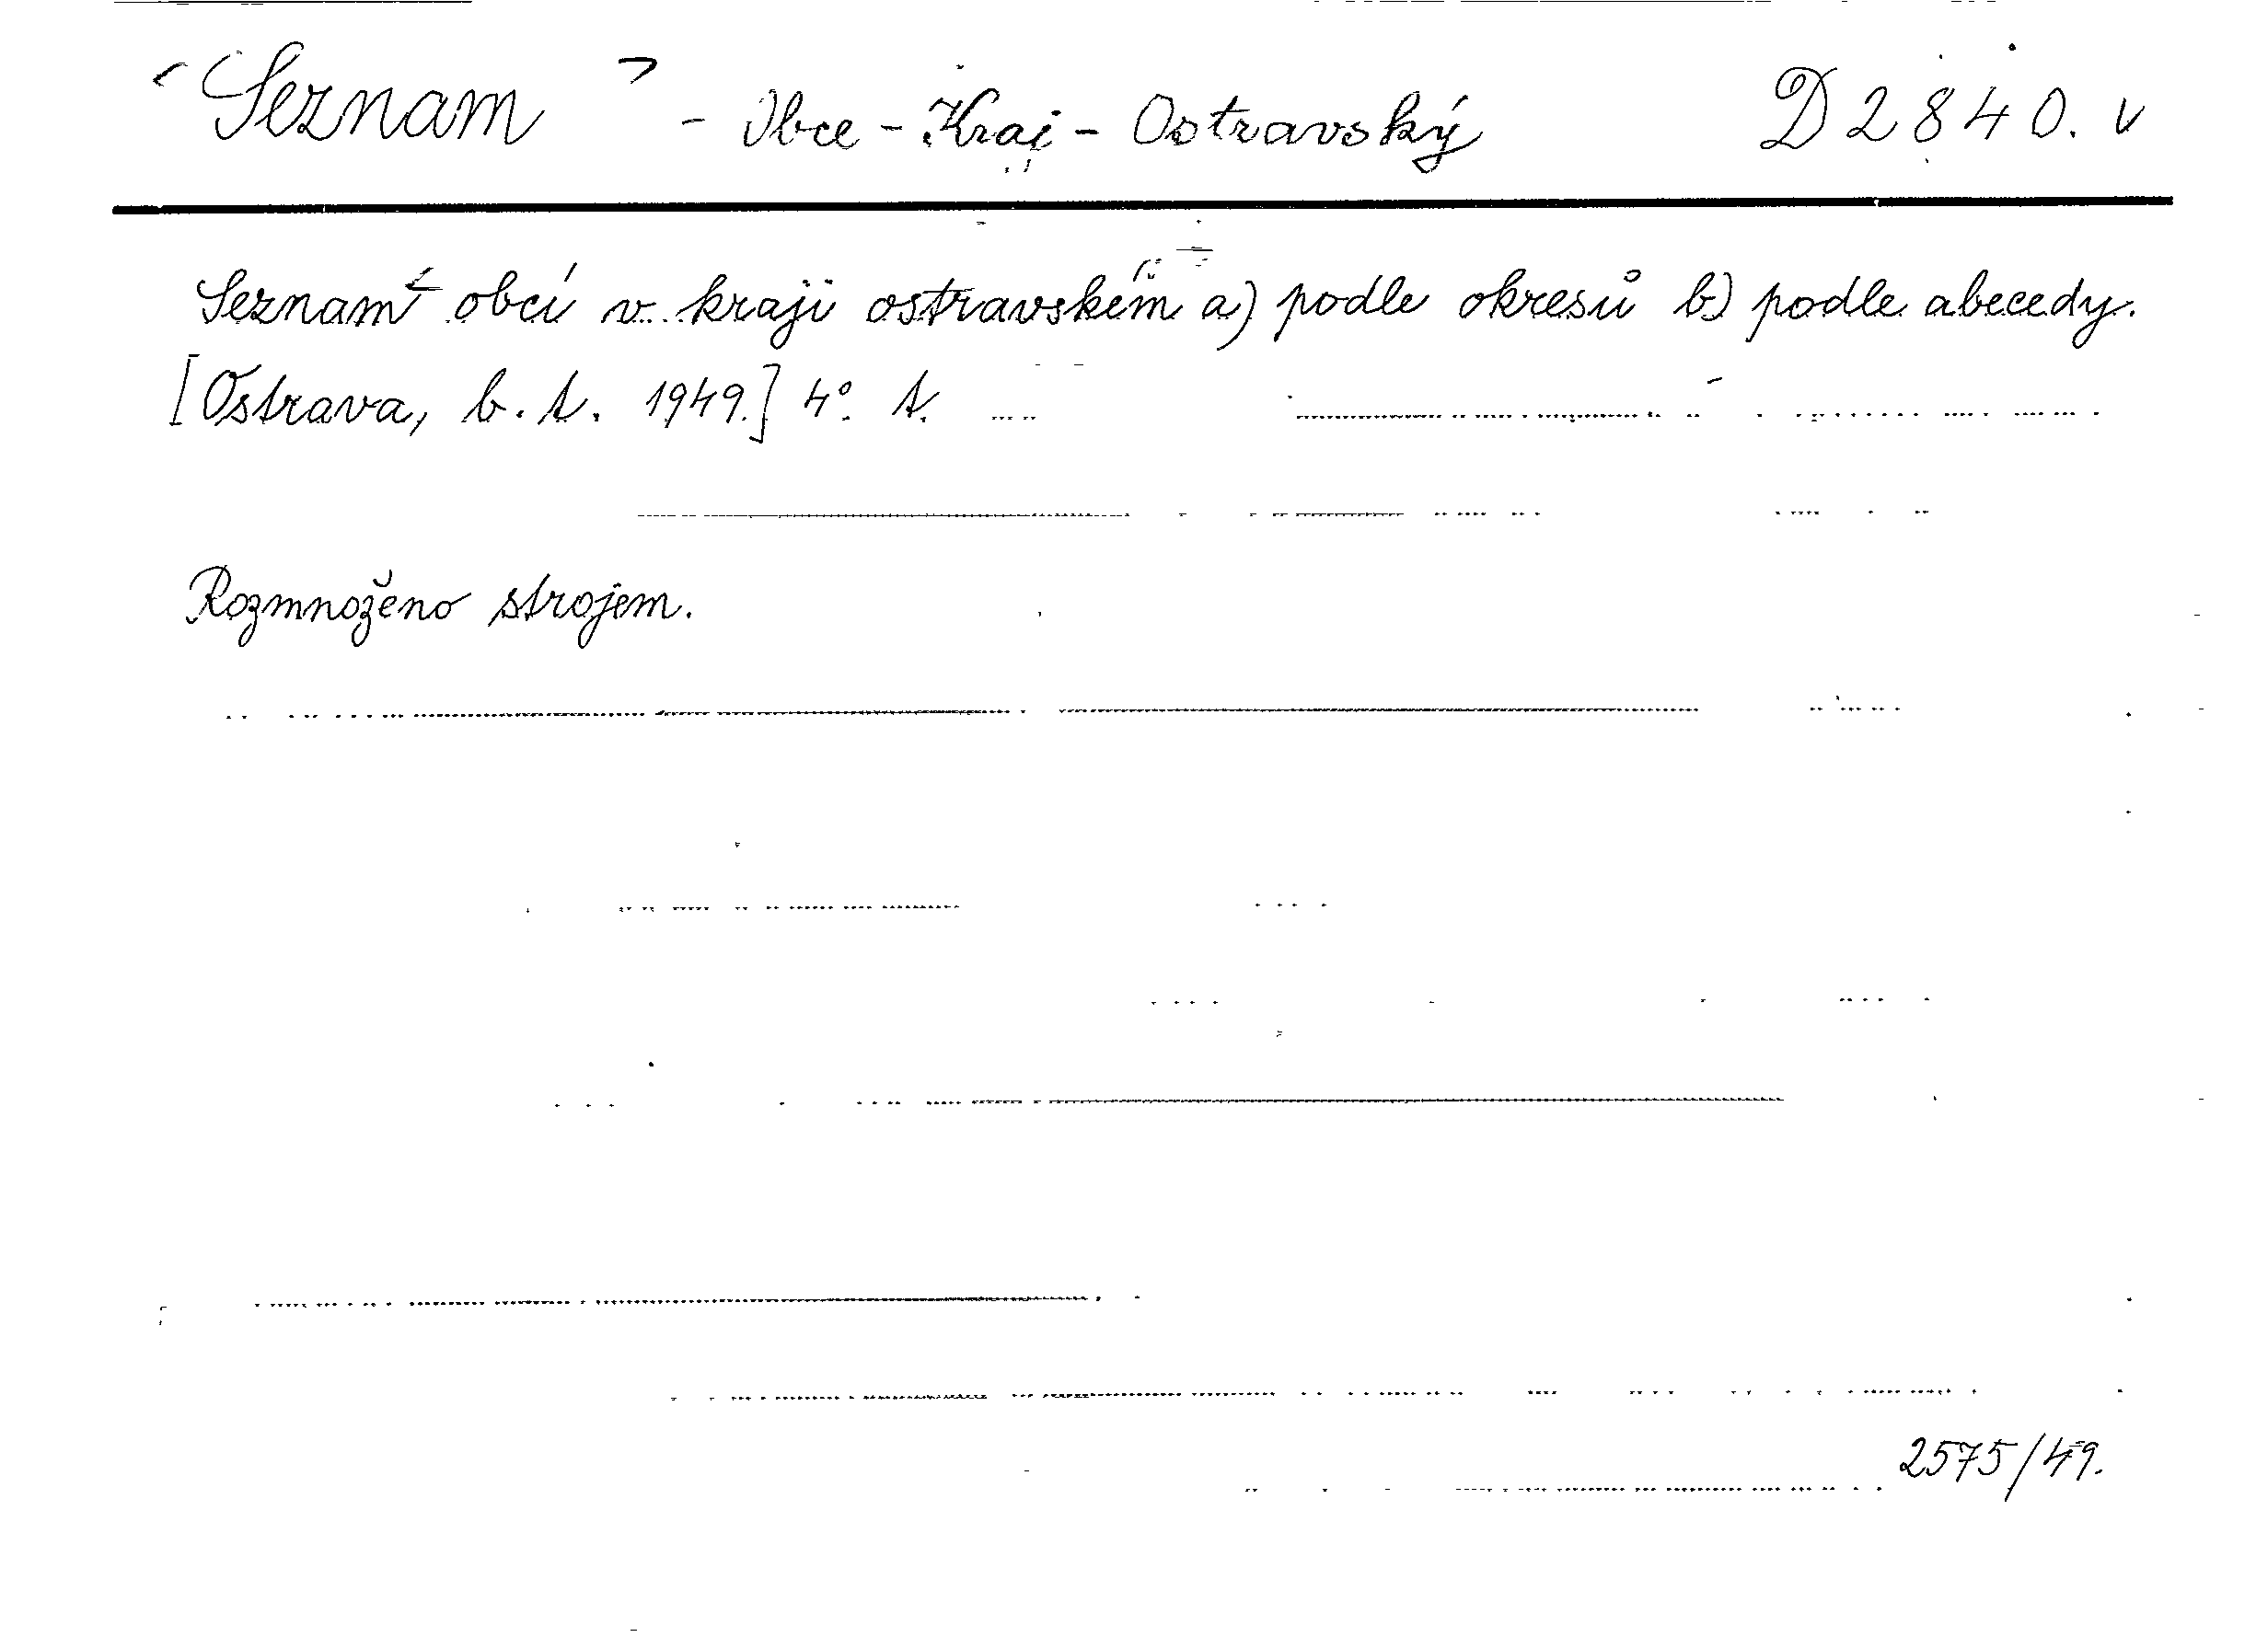 "Seznam" - Obce - Kraj - Ostravský D 2840. v
Seznam obcí v kraji ostravském a) podle okresů b) podle abecedy.
[Ostrava, b. t. 1949.] 4°. t.
Rozmnoženo strojem.
2575/49.